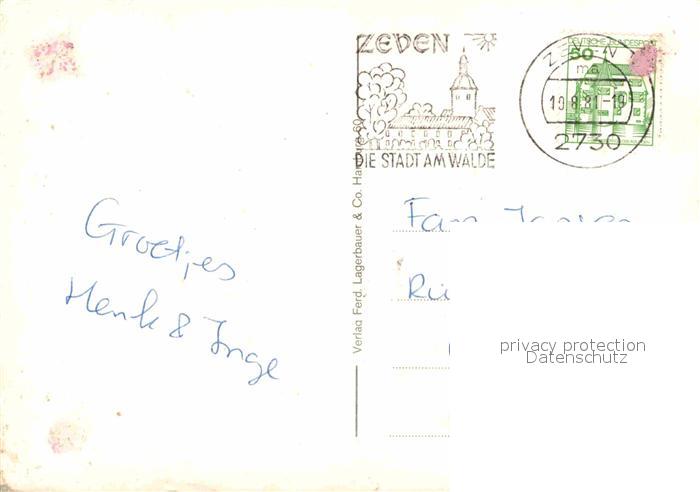 ZEVEN
DIE STADT AM WALDE
DEUTSCHE BUNDESPOST
50
2730
Verlag Ferd. Lagerbauer & Co. Hamburg 60
Groetjes
Henk & Inge
Fam
privacy protection
Datenschutz